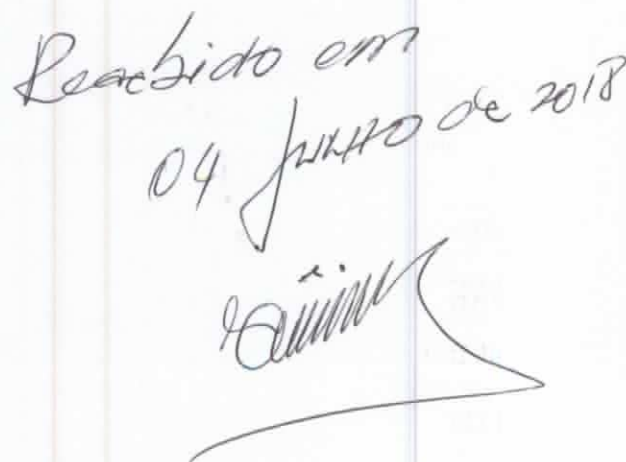 Recebido em
04 JULHO de 2018